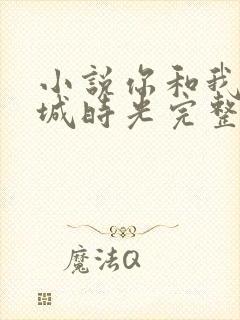 小説你和我
城時光完整
魔法Q